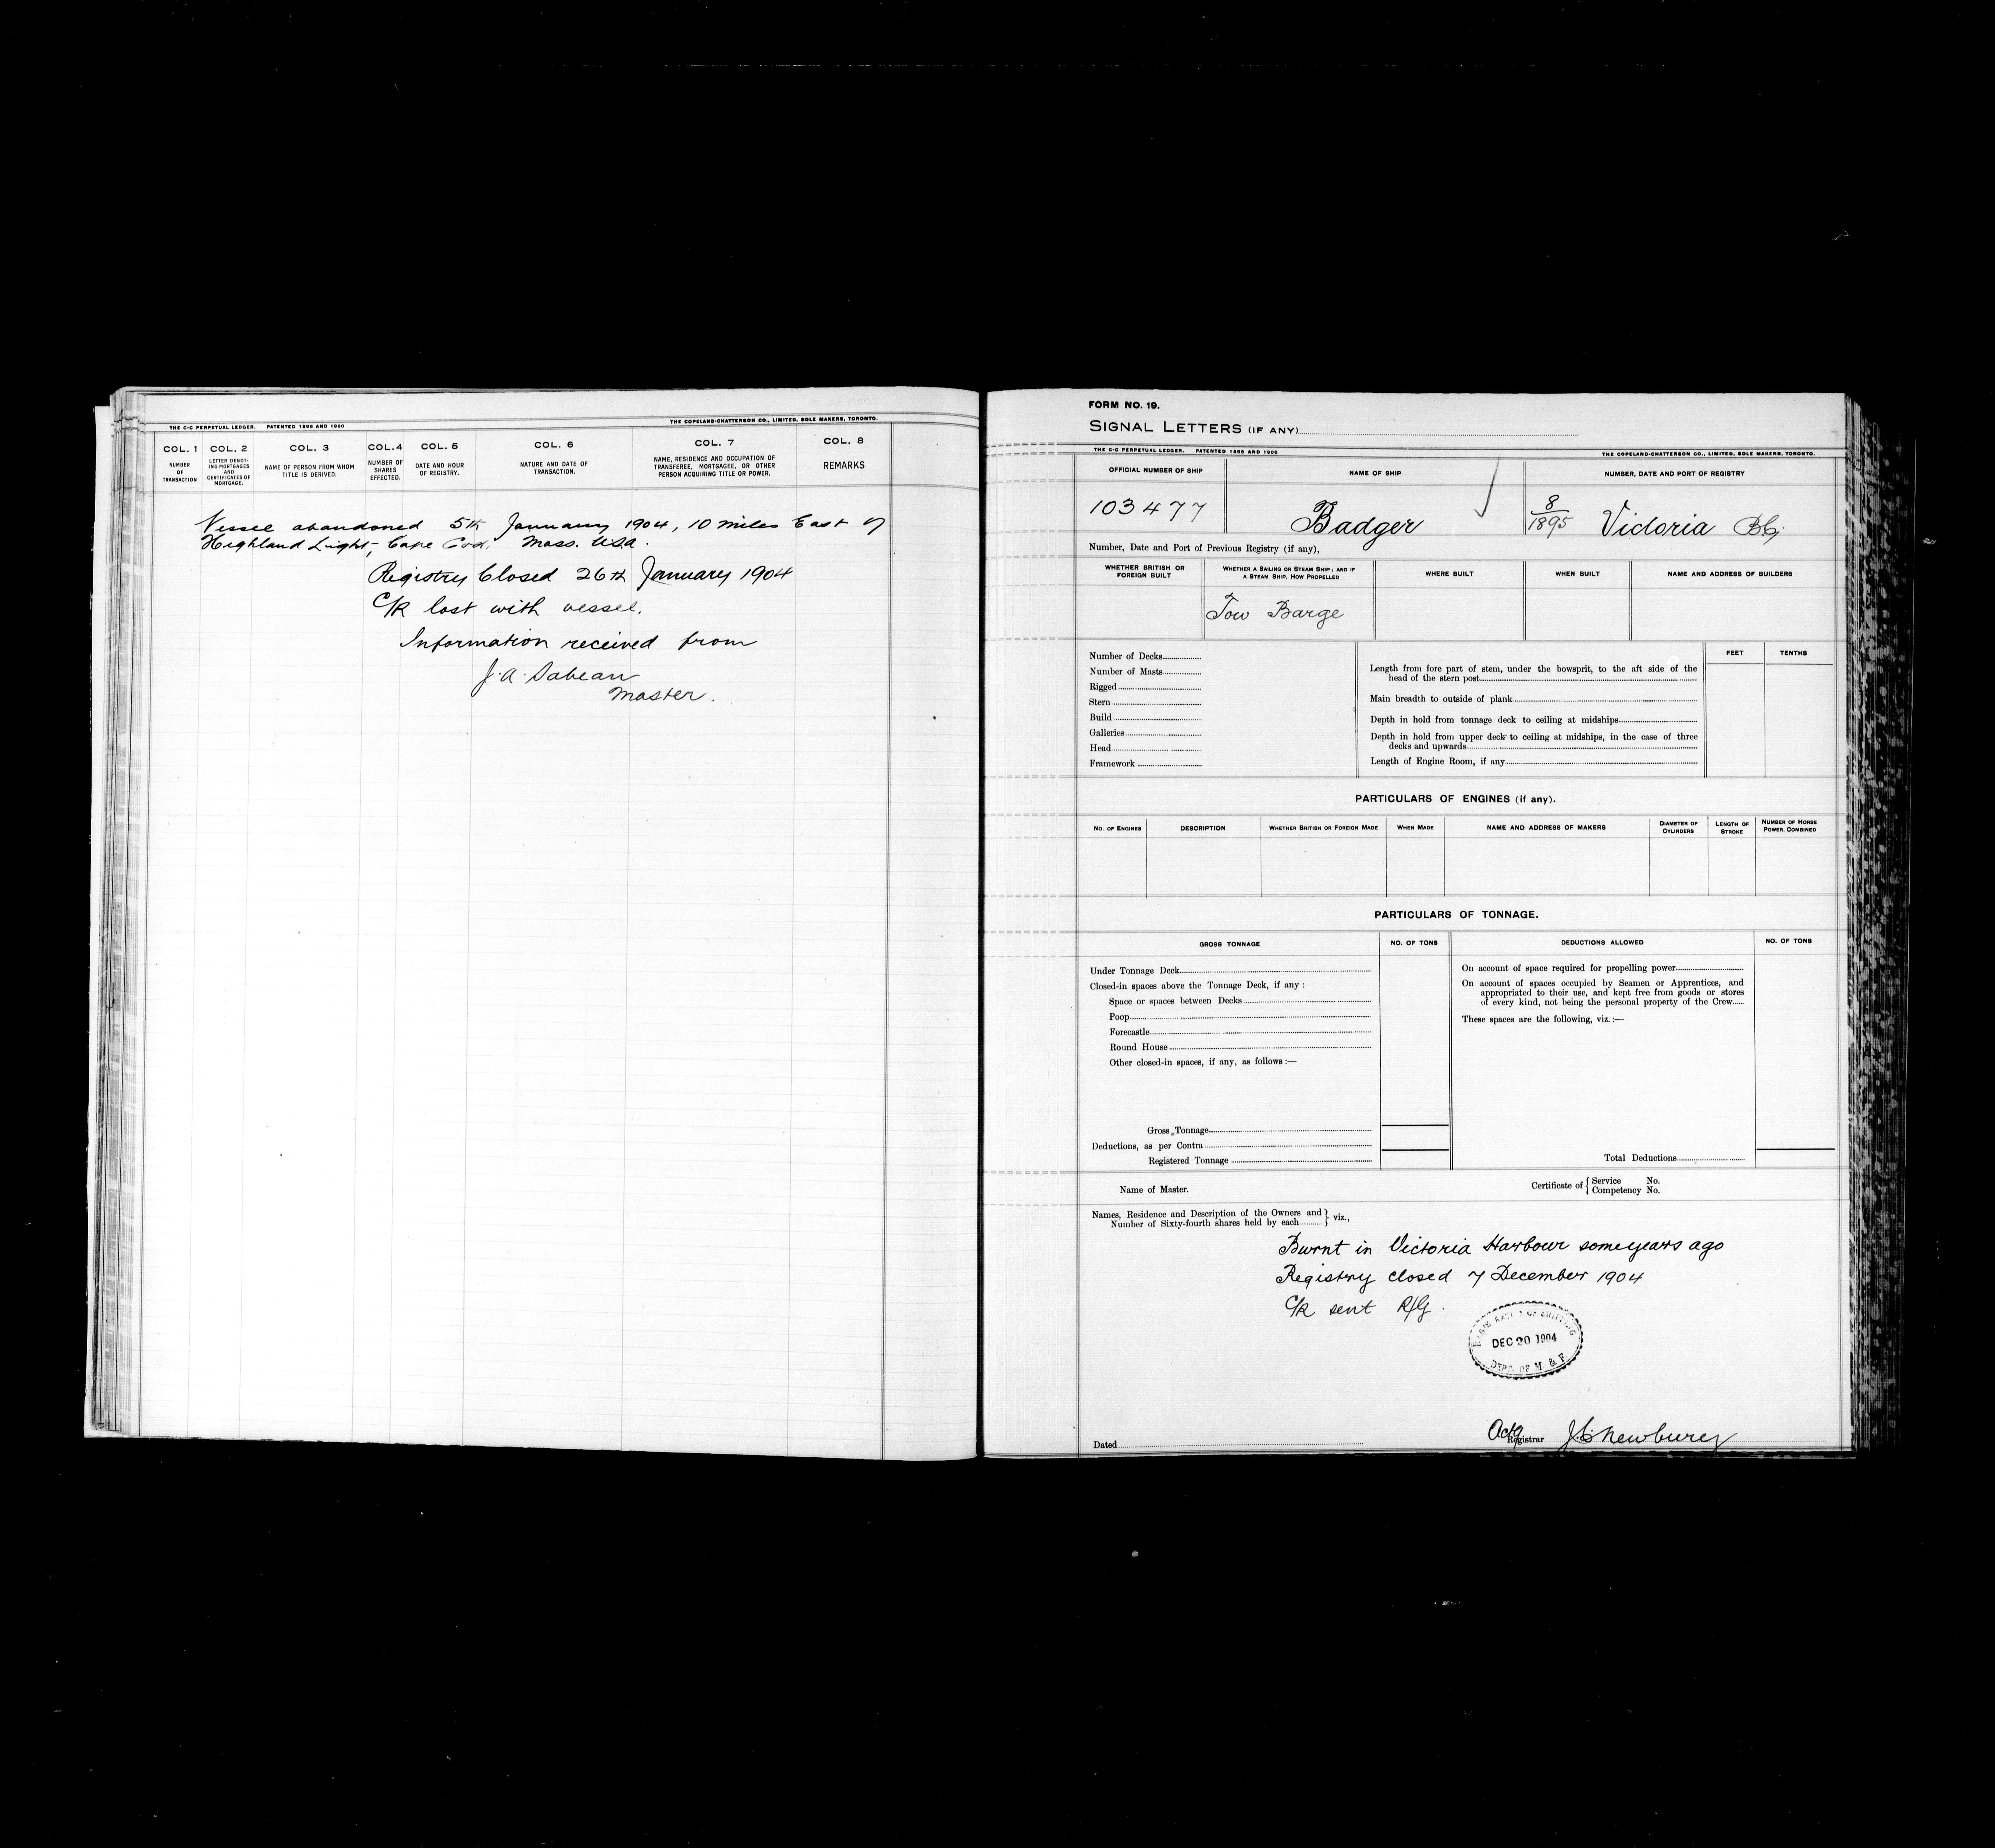 THE C-C PERPETUAL LEDGER. PATENTED 1896 AND 1900
THE COPELAND-CHATTERSON CO., LIMITED, SOLE MAKERS, TORONTO.
COL. 1 COL. 2 COL. 3 COL. 4 COL. 5 COL. 6 COL. 7 COL. 8
NUMBER OF TRANSACTION
LETTER DENOTING MORTGAGES AND CERTIFICATES OF MORTGAGE.
NAME OF PERSON FROM WHOM TITLE IS DERIVED.
NUMBER OF SHARES EFFECTED.
DATE AND HOUR OF REGISTRY.
NATURE AND DATE OF TRANSACTION.
NAME, RESIDENCE AND OCCUPATION OF TRANSFEREE, MORTGAGEE, OR OTHER PERSON ACQUIRING TITLE OR POWER.
REMARKS
Vessel abandoned 5th January 1904, 10 miles East of
Highland Light, Cape Cod. Mass. USA.
Registry Closed 26th January 1904
C/R lost with vessel.
Information received from
J. A. Sabean
Master.
FORM NO. 19.
SIGNAL LETTERS (IF ANY)
THE C-C PERPETUAL LEDGER. PATENTED 1896 AND 1900
THE COPELAND-CHATTERSON CO., LIMITED, SOLE MAKERS, TORONTO.
OFFICIAL NUMBER OF SHIP NAME OF SHIP NUMBER, DATE AND PORT OF REGISTRY
103477 Badger 8/1895 Victoria BC
Number, Date and Port of Previous Registry (if any),
WHETHER BRITISH OR FOREIGN BUILT
WHETHER A SAILING OR STEAM SHIP; AND IF A STEAM SHIP, HOW PROPELLED
WHERE BUILT
WHEN BUILT
NAME AND ADDRESS OF BUILDERS
Tow Barge
Number of Decks
Number of Masts
Rigged
Stern
Build
Galleries
Head
Framework
FEET TENTHS
Length from fore part of stem, under the bowsprit, to the aft side of the
head of the stern post
Main breadth to outside of plank
Depth in hold from tonnage deck to ceiling at midships
Depth in hold from upper deck to ceiling at midships, in the case of three
decks and upwards
Length of Engine Room, if any
PARTICULARS OF ENGINES (if any).
NO. OF ENGINES
DESCRIPTION
WHETHER BRITISH OR FOREIGN MADE
WHEN MADE
NAME AND ADDRESS OF MAKERS
DIAMETER OF CYLINDERS
LENGTH OF STROKE
NUMBER OF HORSE POWER, COMBINED
PARTICULARS OF TONNAGE.
GROSS TONNAGE NO. OF TONS DEDUCTIONS ALLOWED NO. OF TONS
Under Tonnage Deck
Closed-in spaces above the Tonnage Deck, if any :
Space or spaces between Decks
Poop
Forecastle
Round House
Other closed-in spaces, if any, as follows :—
Gross Tonnage
Deductions, as per Contra
Registered Tonnage
On account of space required for propelling power
On account of spaces occupied by Seamen or Apprentices, and
appropriated to their use, and kept free from goods or stores
of every kind, not being the personal property of the Crew
These spaces are the following, viz. :—
Total Deductions
Name of Master.
Certificate of { Service No.
Competency No.
Names, Residence and Description of the Owners and
Number of Sixty-fourth shares held by each } viz.,
Burnt in Victoria Harbour some years ago
Registry closed 7 December 1904
C/R sent R/G.
REGISTRATION OF SHIPPING
DEC 20 1904
DEPT. OF M. & F.
Dated
Actg Registrar J. C. Newbury